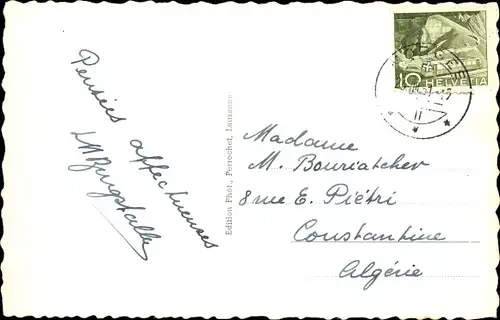 Pensées affectueuses
Edition Phot., Perrochet, Lausanne
10 HELVETIA
Madame
M. Bouriatchev
8 rue E. Piétri
Constantine
Algérie